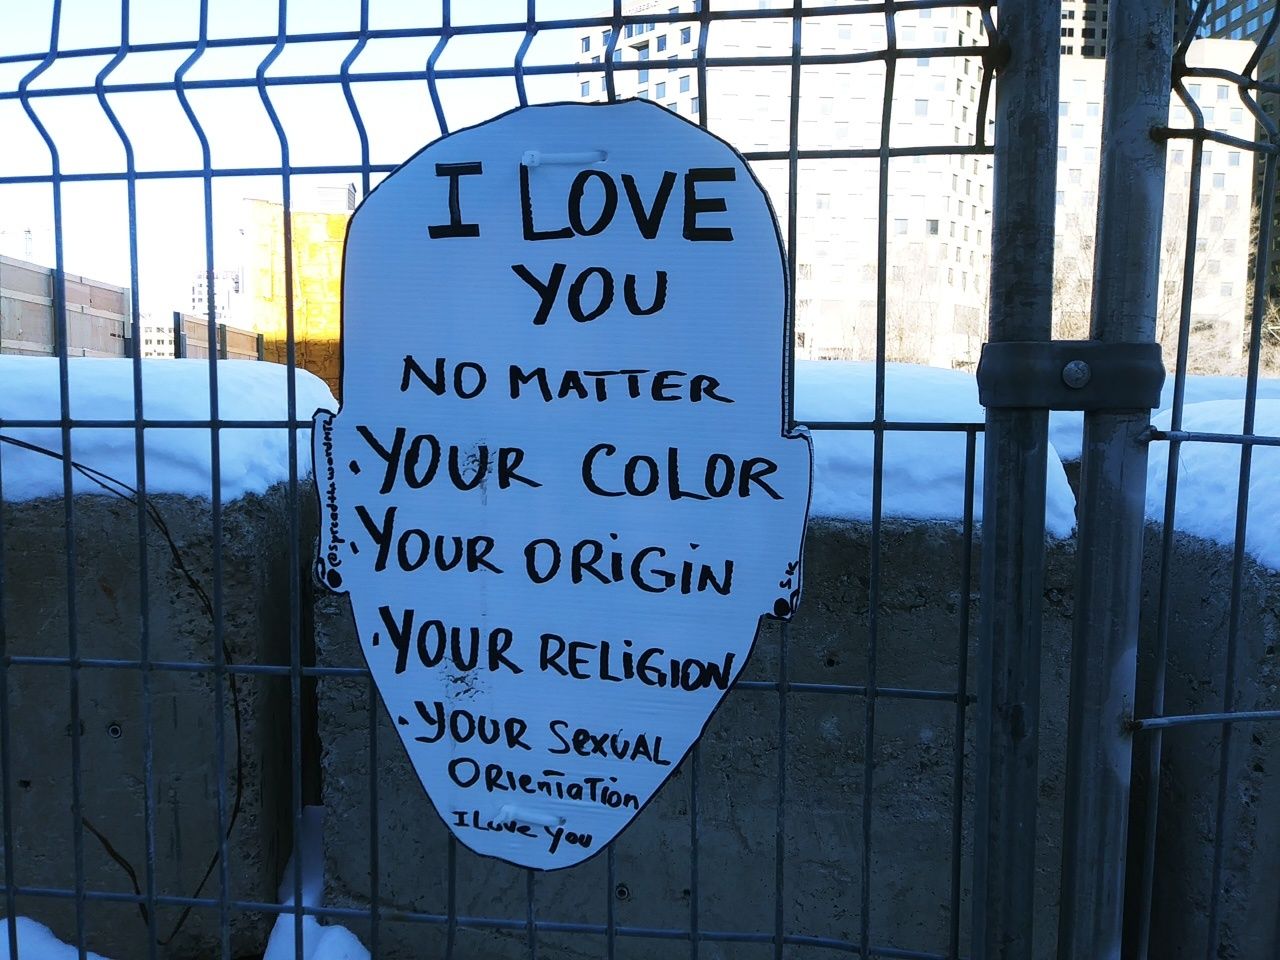 I LOVE
YOU
NO MATTER
.YOUR COLOR
.YOUR ORIGIN
.YOUR RELIGION
.YOUR SEXUAL
ORIENTATION
I Love You
@spreadthewordMTL
SK